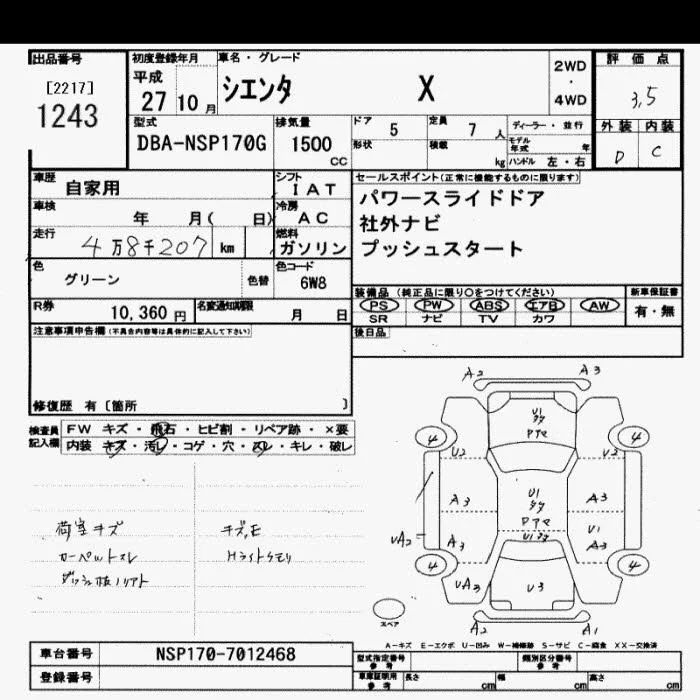 出品番号
[2217]
1243
初度登録年月
平成
27年10月
車名・グレード
シエンタ X
2WD
・
4WD
評価点
3,5
外装 内装
D C
型式
DBA-NSP170G
排気量
1500
CC
ドア 5
定員 7 人
形状
積載 kg
ディーラー・並行
モデル年式 年
ハンドル 左・右
車歴
自家用
車検
年 月( 日)
走行
4万8千207 km
シフト
IAT
冷房
AC
燃料
ガソリン
セールスポイント(正常に機能するものに限ります)
パワースライドドア
社外ナビ
プッシュスタート
色
グリーン
色替
色コード
6W8
装備品(純正品に限り○をつけてください)
PS PW ABS エアB AW
SR ナビ TV カワ
新車保証書
有・無
R券
10,360 円
名変通知期限
月 日
後日品
注意事項申告欄(不具合内容等は具体的に記入して下さい)
修復歴 有〔箇所 〕
検査員
記入欄
FW キズ・飛石・ヒビ割・リペア跡・×要
内装 キズ・汚レ・コゲ・穴・スレ・キレ・破レ
荷室キズ
カーペットスレ
キズ,E
Hライトクモリ
A2 A3
U1
4 4
U2 U2
A3
U1
A3
U1
A3
UA2
A3
4 4
UA3
U3
A2 A1
スペア
A-キズ E-エクボ U-凹み W-補修跡 S-サビ C-腐食 XX-交換済
車台番号
NSP170-7012468
登録番号
型式指定番号
参考
類別区分番号
参考
車庫証明用
参考
長さ cm
幅 cm
高さ cm